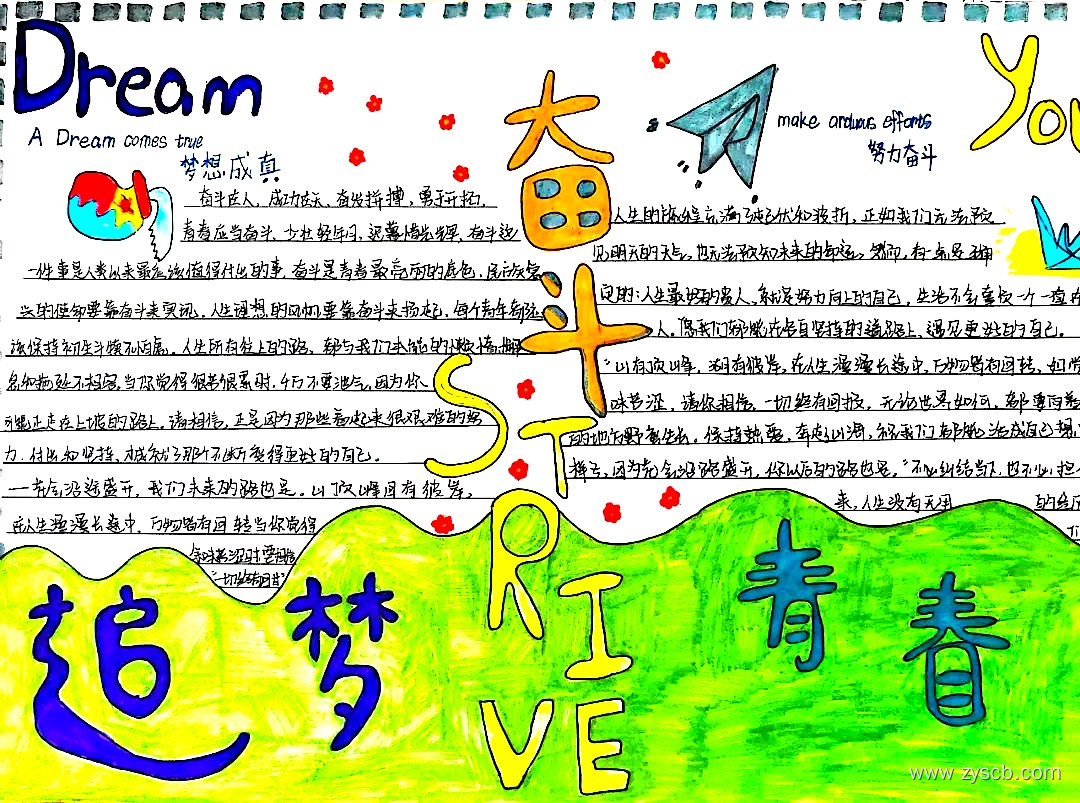 Dream
A Dream comes true
梦想成真
奋斗在人，成功在天，奋发拼搏，勇于开拓，
青春应当奋斗，少壮轻年月，迟暮惜光辉，奋斗这
一件事是人类以来最应该值得付出的事，奋斗是青春最亮丽的底色，民族复
兴的使命要靠奋斗来实现，人生理想的风帆要靠奋斗来扬起，每个青年都应
该保持初生牛犊不怕虎，人生所有往上的路，都与我们
当你觉得很苦很累时，千万不要泄气，因为你
可能正走在上坡的路上，请相信，正是因为那些看起来很艰难的努
力，付出和坚持，成就了那个不断变得更好的自己。
一定会沿途盛开，我们未来的路也是。山顶山峰自有彼岸，
在人生漫漫长途中，万物皆有回转当你觉得
余味苦涩时请相信
"一切终有回甘"
奋斗
STRIVE
make arduous efforts
努力奋斗
You
人生的旅途充满了起伏和波折，正如我们无法预
见明天的天气，也无法预知未来的命运，然而，有一点是
的：人生最好的贵人，就是努力向上的自己，生活不会辜负一个一直
人，愿我们都能在自己坚持的道路上，遇见更好的自己。
"山有顶峰，湖有彼岸，在人生漫漫长途中，万物皆有回转，如
味苦涩，请你相信，一切终有回报，无论世界如何，都要
的地方野蛮生长，保持热爱，奔赴山海，愿我们都能活成自己想
样子，因为花会沿路盛开，你以后的路也是，"不必纠结当下，也不必担
来，人生没有无用
的经历
追梦
青春
www.zyscb.com